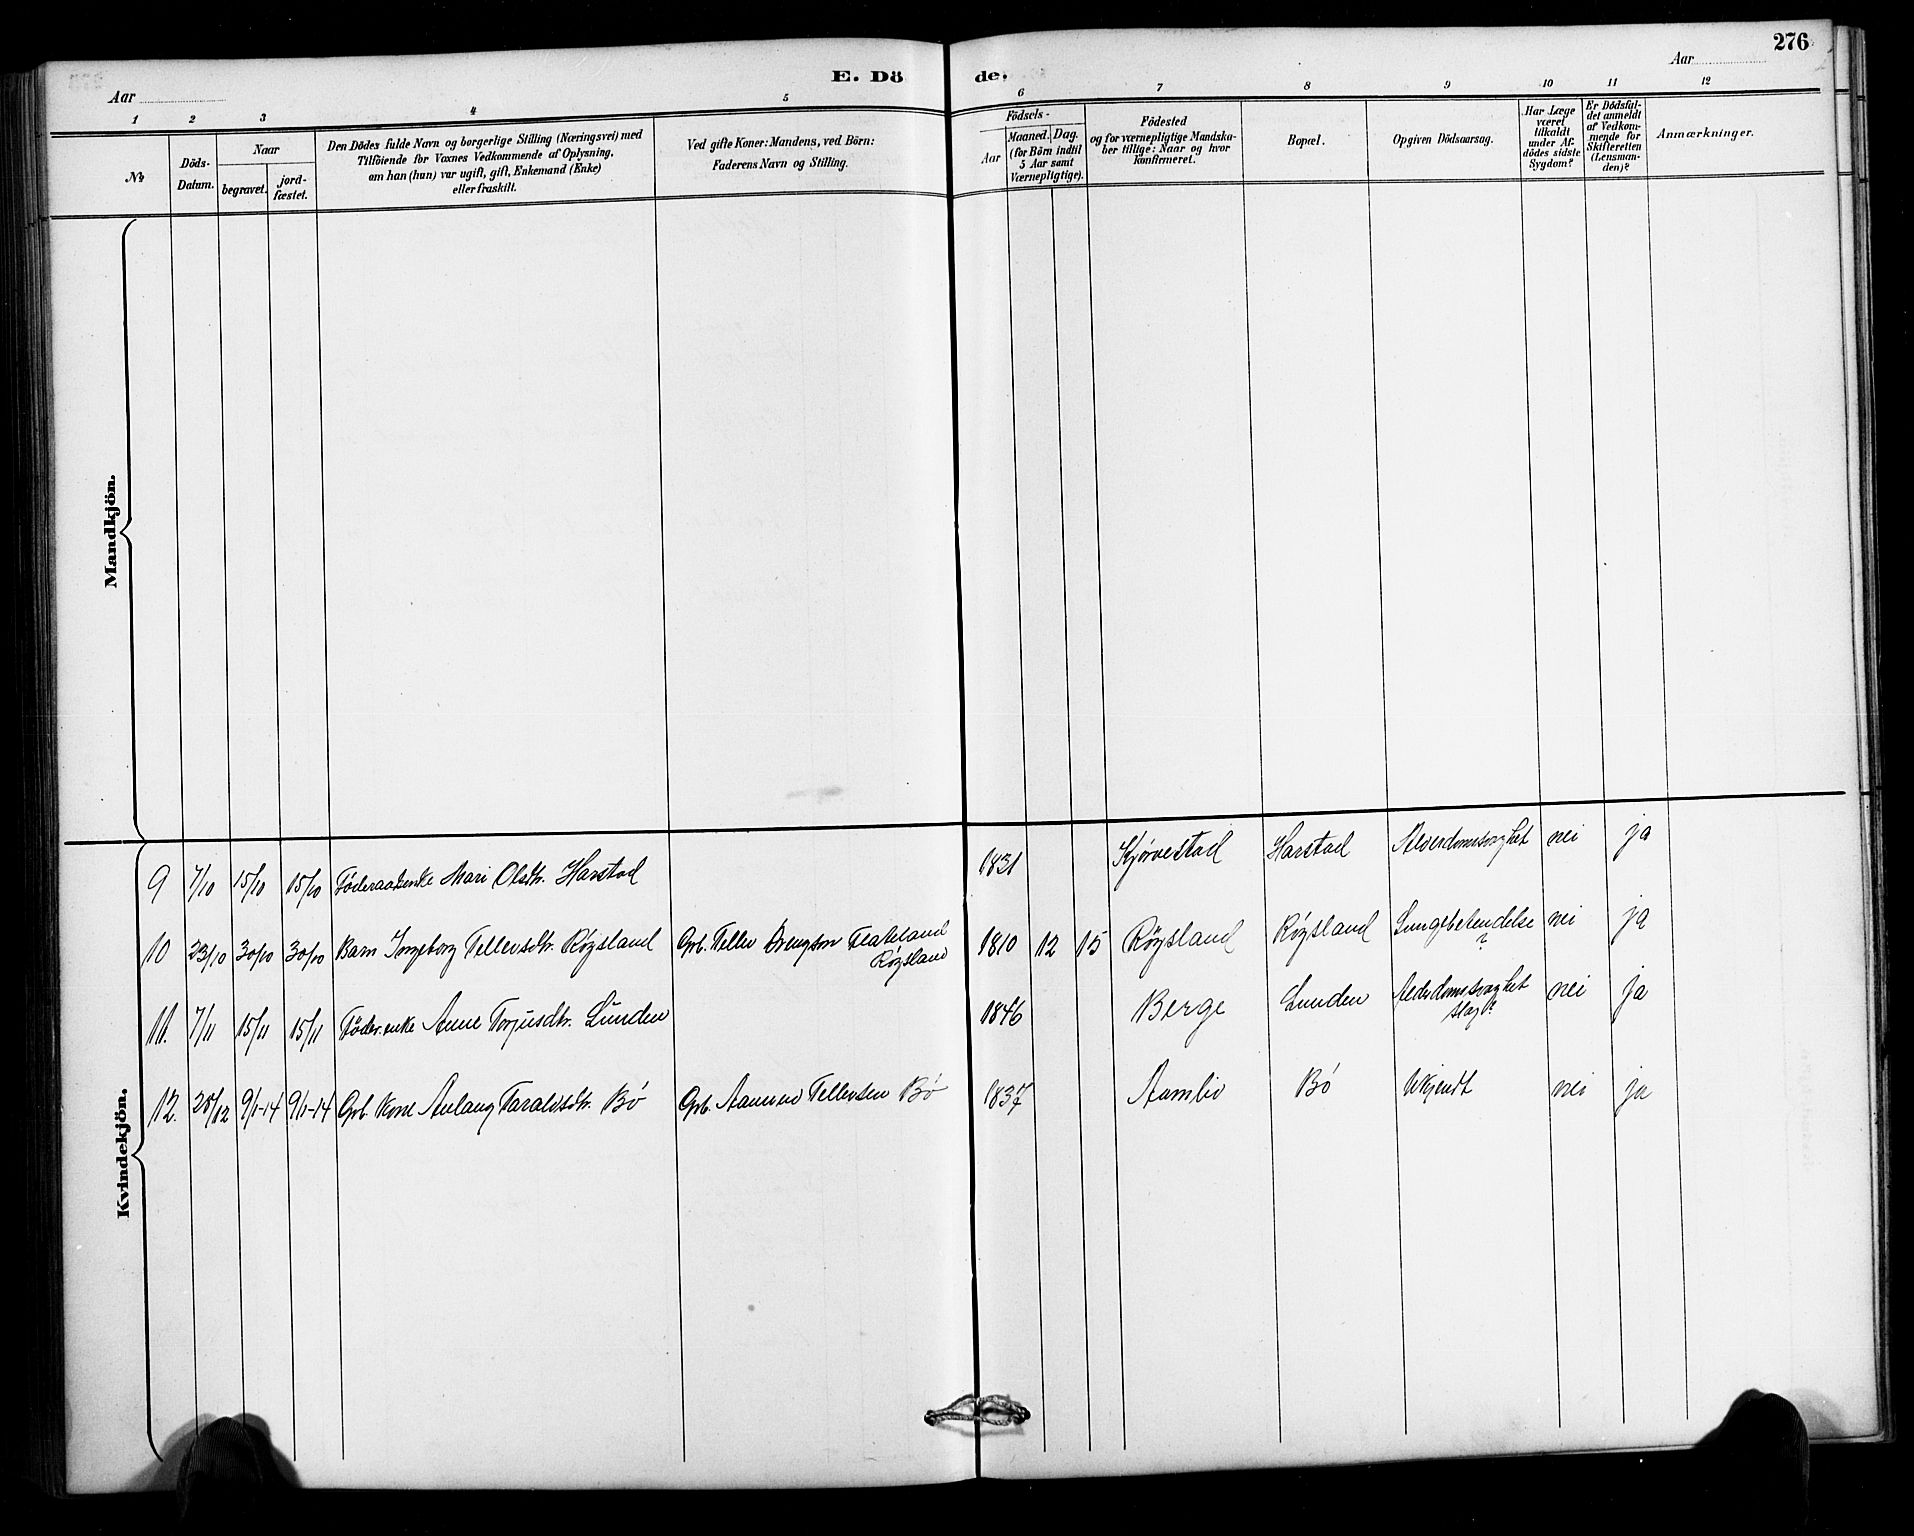 276
E. Dö de.
Aar
Aar
1 2 3 4 5 6 7 8 9 10 11 12
№
Döds-
Datum.
Naar
begravet.
jord-
fæstet.
Den Dödes fulde Navn og borgerlige Stilling (Næringsvei) med
Tilföiende for Voxnes Vedkommende af Oplysning,
om han (hun) var ugift, gift, Enkemand (Enke)
eller fraskilt.
Ved gifte Koner: Mandens, ved Börn:
Faderens Navn og Stilling.
Födsels-
Aar
Maaned. Dag.
(for Börn indtil
5 Aar samt
Værnepligtige).
Födested
og for værnepligtige Mandska-
ber tillige: Naar og hvor
konfirmeret.
Bopæl.
Opgiven Dödsaarsag.
Har Læge
været
tilkaldt
under Af-
dödes sidste
Sygdom?
Er Dödsfal-
det anmeldt
af Vedkom-
mende for
Skifteretten
(Lensman-
den)?
Anmærkninger.
Mandkjön.
Kvindekjön.
9 7/10 15/10 15/10 Föderaadsenke Mari Olsdtr. Harstad 1831 Kjørvestad Harstad Alderdomssvaghet nei ja
10 23/10 30/10 30/10 Barn Ingeborg Tellevsdtr. Røysland Grb. Tellev Drengson Flateland 1810 12 15 Röysland Röysland Lungebetendelse nei ja
Røysland ?
11. 7/11 15/11 15/11 Föder.enke Anne Torjusdtr. Lunden 1846 Berge Lunden Alderdomssvaghet nei ja
slag?
12. 28/12 9/1-14 9/1-14 Grb. Kone Anlaug Taraldsdtr. Bö Grb. Aanund Tellevsen Bö 1837 Aamlid Bö Ukjendt nei ja